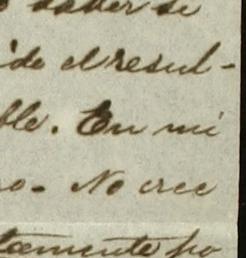 saber se
ide el resul-
ble. En mi
no. No cree
tamente po